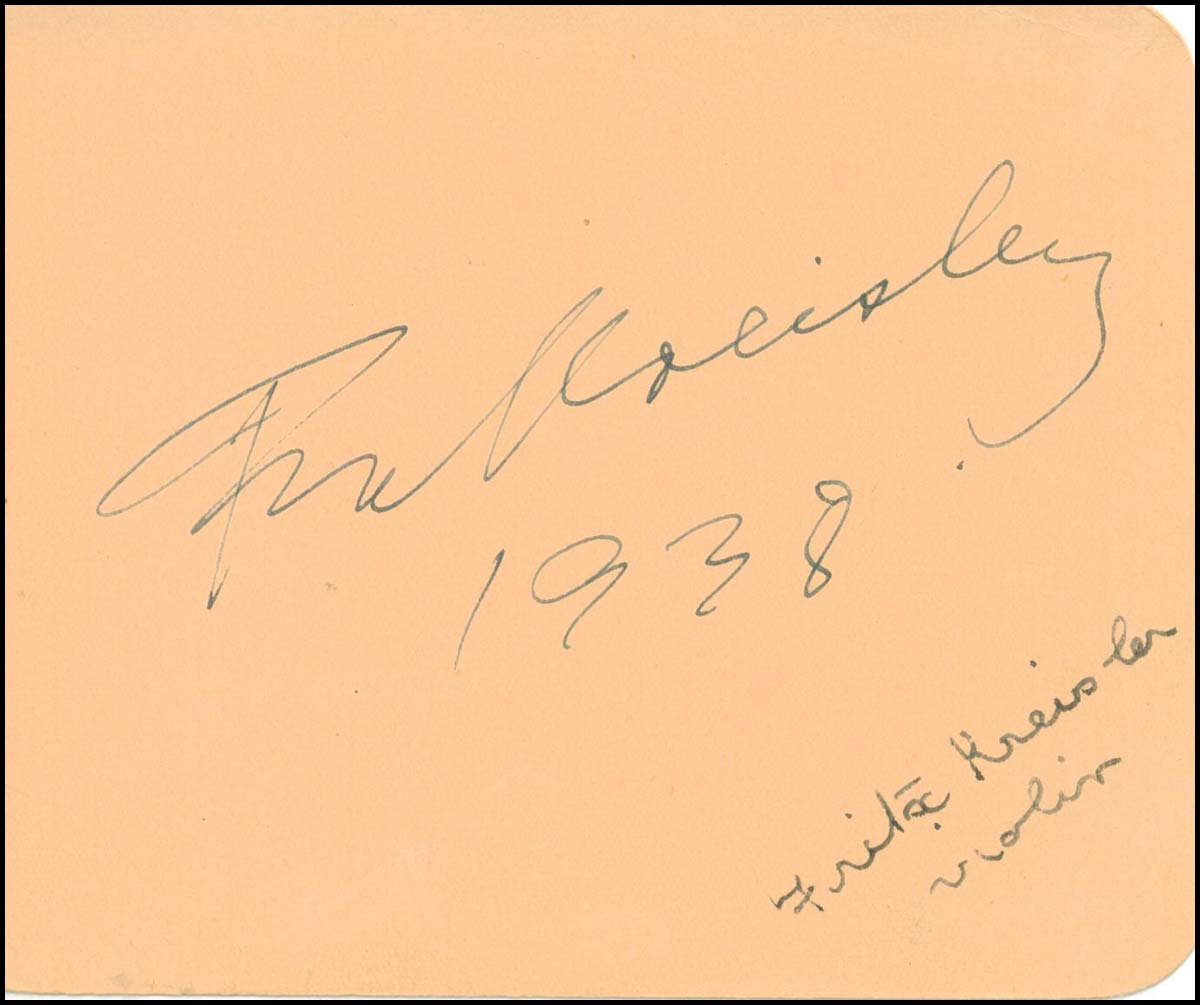 Fritz Kreisler
1938
Fritz Kreisler
violin